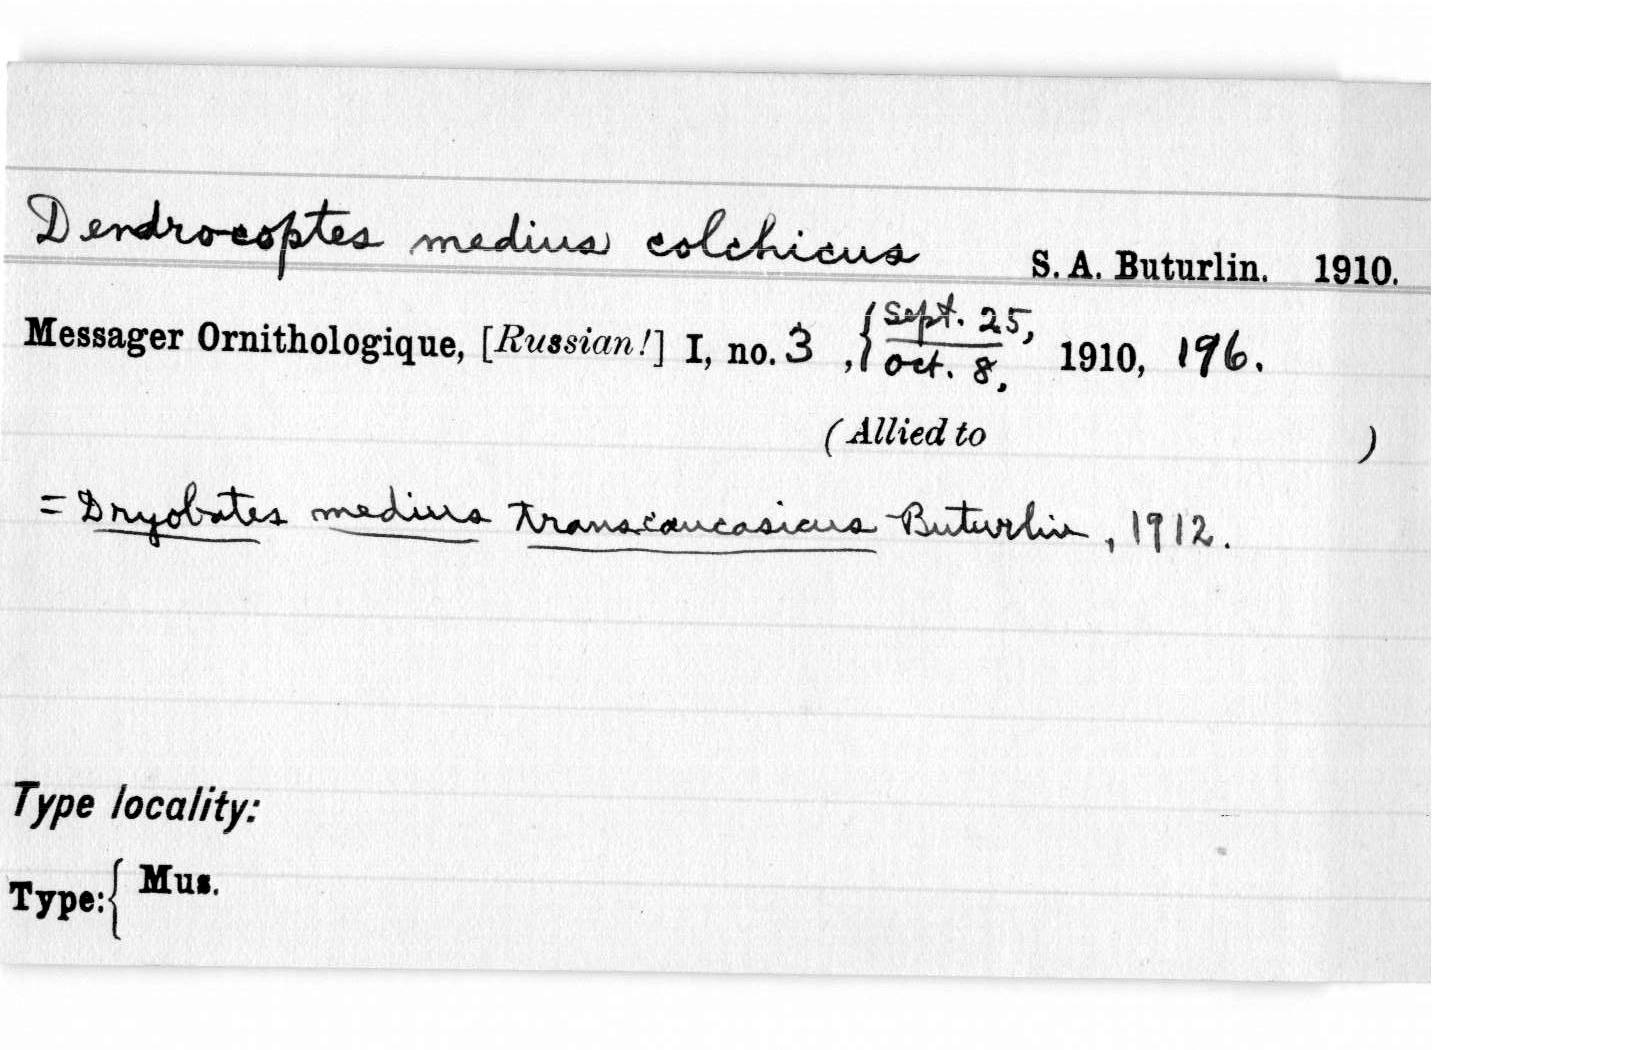 Dendrocoptes medius colchicus S. A. Buturlin. 1910.
Messager Ornithologique, [Russian!] I, no. 3 , { Sept. 25, / Oct. 8, , 1910, 196.
(Allied to )
= Dryobates medius transcaucasicus Buturlin, 1912.
Type locality:
Type: { Mus.